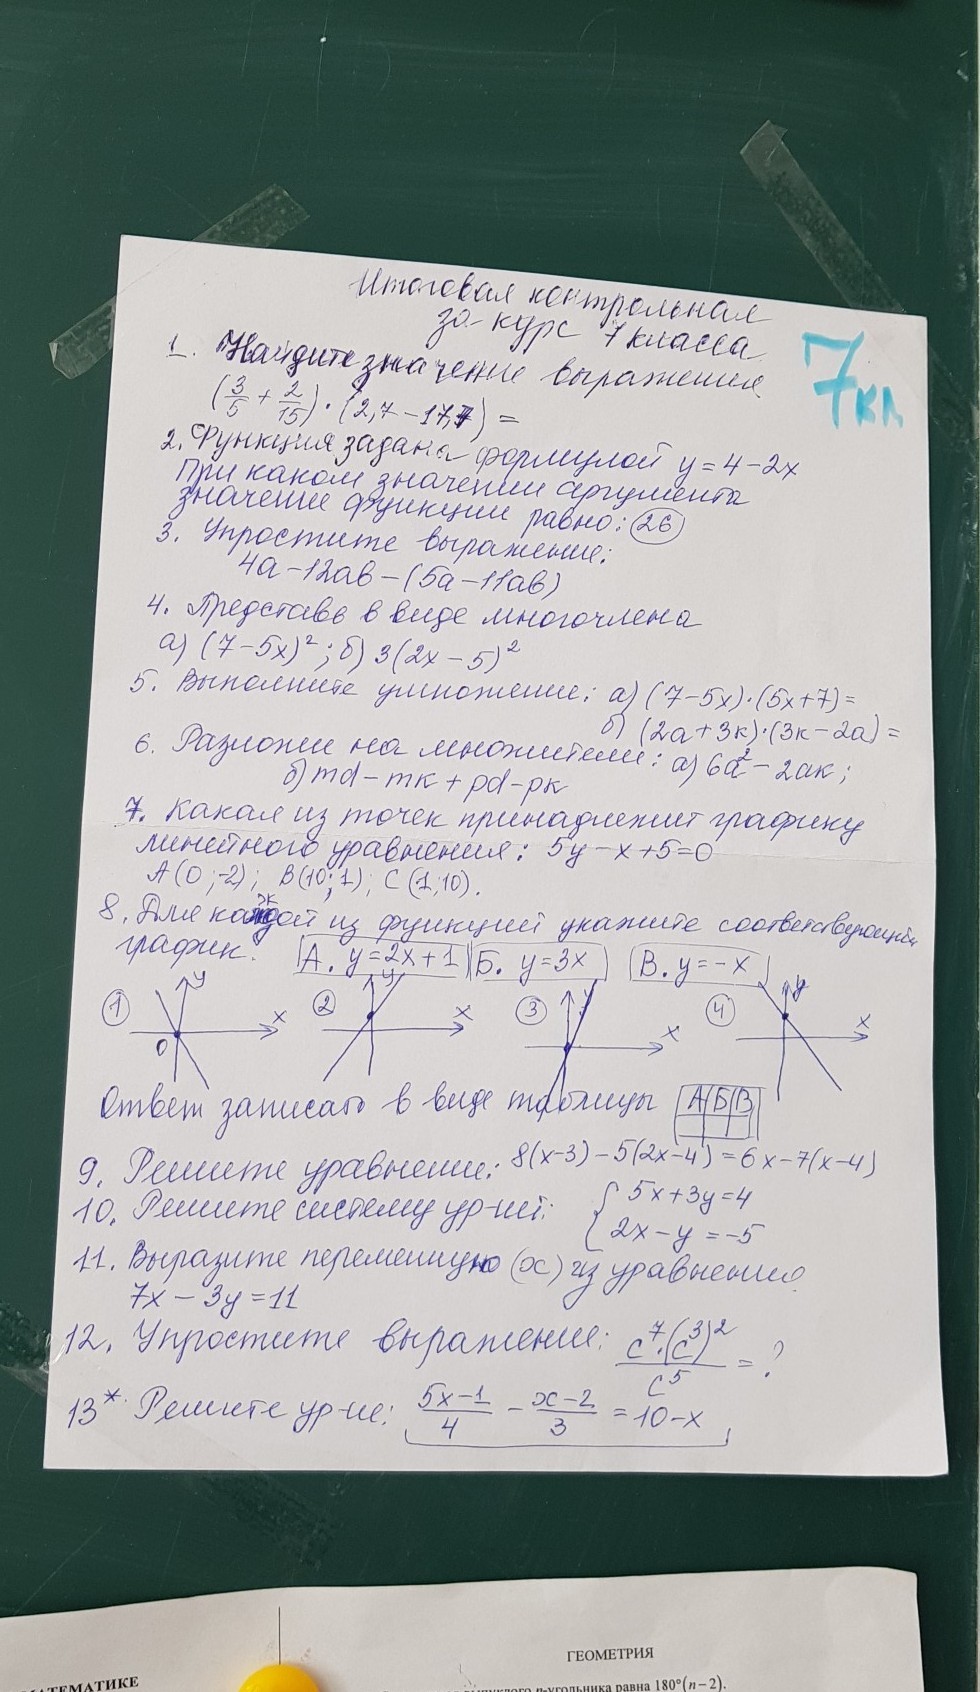 Итоговая контрольная
за курс 7 класса
7 кл
1. Найдите значение выражения
(3/5 + 2/15) · (2,7 – 17,7) =
2. Функция задана формулой y = 4 – 2x
При каком значении аргумента
значение функции равно: 26
3. Упростите выражение:
4a – 12ab – (5a – 11ab)
4. Представь в виде многочлена
а) (7 – 5x)²; б) 3(2x – 5)²
5. Выполните умножение: а) (7 – 5x)·(5x + 7) =
б) (2a + 3к)·(3к – 2a) =
6. Разложи на множители: а) 6a² – 2aк;
б) md – mк + pd – pк
7. Какая из точек принадлежит графику
линейного уравнения: 5y – x + 5 = 0
A(0; -2); B(10; 1); C(1; 10).
8. Для каждой из функций укажите соответствующий
график. А. y = 2x + 1 Б. y = 3x В. y = – x
1 y x 0 2 y x 3 y x 4 y x
Ответ записать в виде таблицы А Б В
9. Решите уравнение: 8(x – 3) – 5(2x – 4) = 6x – 7(x – 4)
10. Решите систему ур-ний: { 5x + 3y = 4
2x – y = –5
11. Выразите переменную (x) из уравнения
7x – 3y = 11
12. Упростите выражение: c⁷·(c³)²/c⁵ = ?
13* Решите ур-ие: (5x – 1)/4 – (x – 2)/3 = 10 – x
ГЕОМЕТРИЯ
МАТЕМАТИКЕ
n-угольника равна 180°(n – 2).